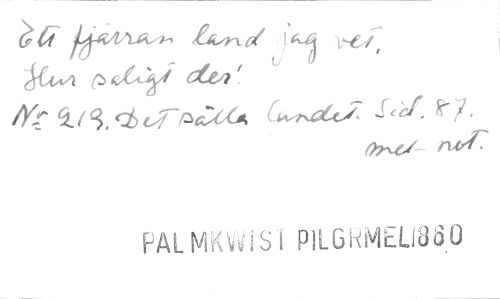 Ett fjärran land jag vet,
Hur saligt der!
No 219. Det sälla landet. Sid. 87.
mel- not.
PALMKWIST PILGRMEL1860